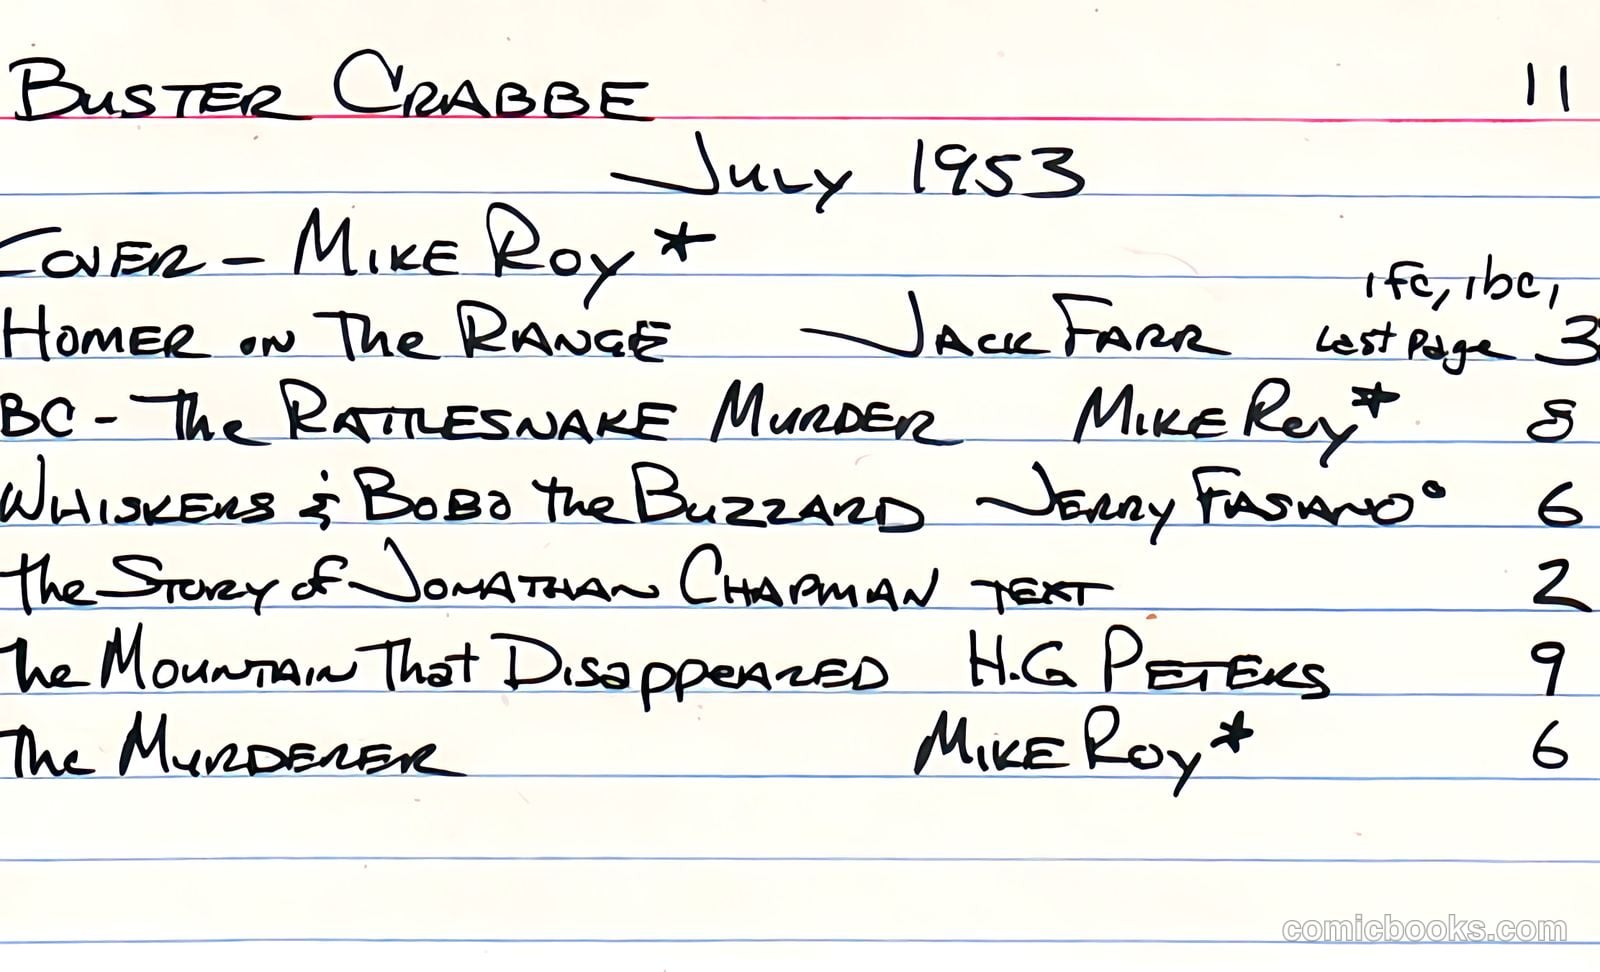 BUSTER CRABBE 11
JULY 1953
COVER – MIKE ROY *
ifc, ibc,
HOMER ON The RANGE JACK FARR Last Page 3
BC - The RATTLESNAKE MURDER MIKE ROY* 8
WHISKERS & BOBO the BUZZARD JERRY FASANO° 6
the STORY of JONATHAN CHAPMAN TEXT 2
the MOUNTAIN That DISAPPEARED H.G PETERS 9
The MURDERER MIKE ROY* 6
comicbooks.com